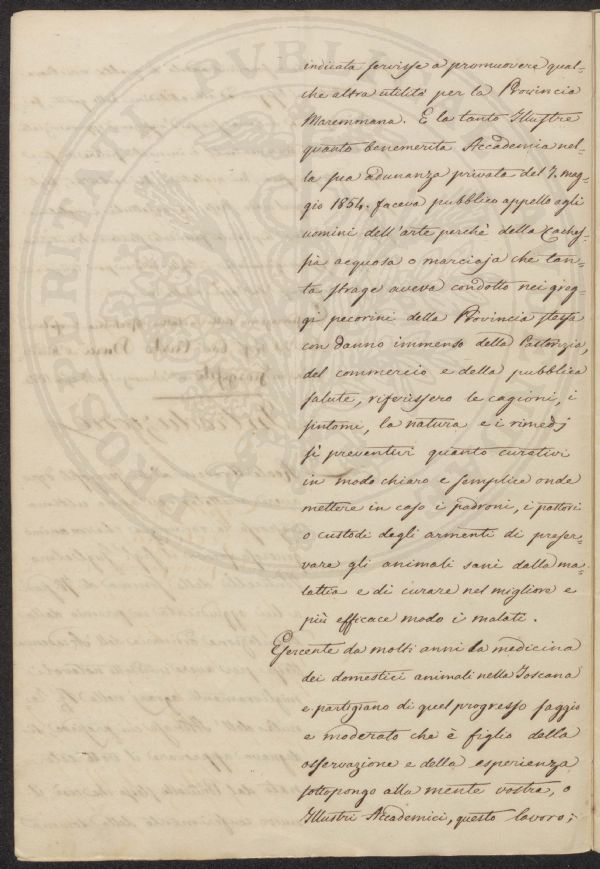 PROSPERITATI PUBLICAE
indicata servisse a promuovere qual-
che altra utilità per la Provincia
Maremmana. E la tanto Illustre
quanto benemerita Accademia nel-
la sua adunanza privata del 7. mag-
gio 1854. faceva pubblico appello agli
uomini dell'arte perchè della Caches-
sia acquosa o marciaja che tan-
ta strage aveva condotto nei greg-
gi pecorini della Provincia stessa
con danno immenso della Pastorizia,
del commercio e della pubblica
salute, riferissero le cagioni, i
sintomi, la natura e i rimedj
sì preventivi quanto curativi
in modo chiaro e semplice onde
mettere in caso i padroni, i pastori
o custodi degli armenti di preser-
vare gli animali sani dalla ma-
lattia e di curare nel migliore e
più efficace modo i malati.
Esercente da molti anni la medicina
dei domestici animali nella Toscana
e partigiano di quel progresso saggio
e moderato che è figlio della
osservazione e della esperienza
sottopongo alla mente vostra, o
Illustri Accademici, questo lavoro;